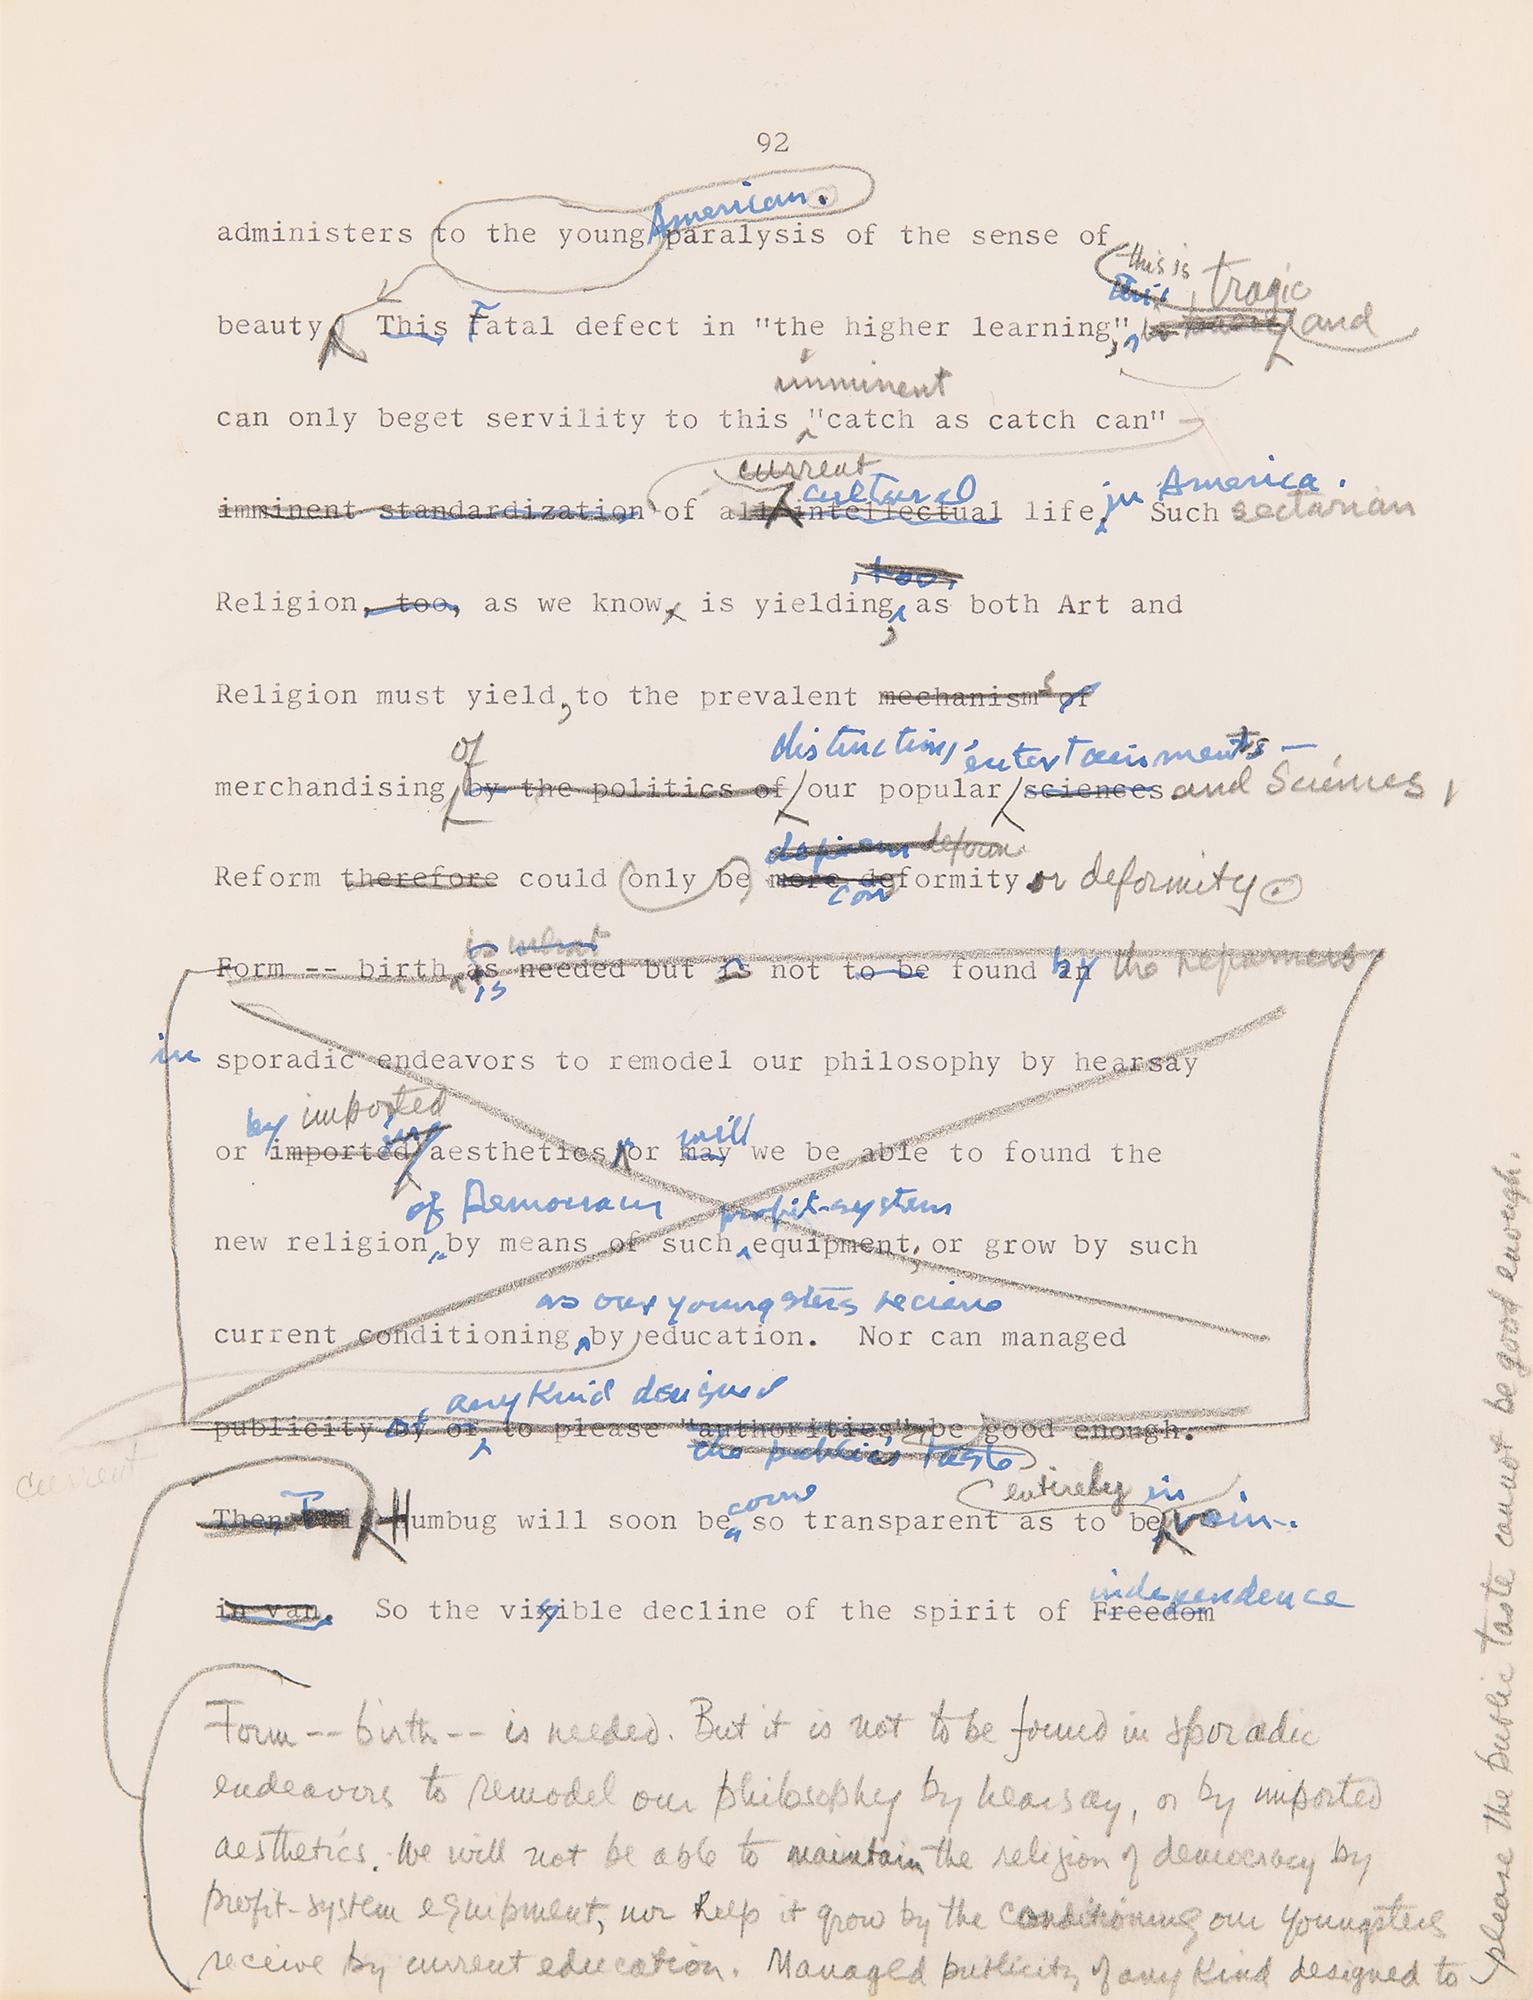 92
American.
administers to the young paralysis of the sense of
this is
this, tragic
beauty, This Fatal defect in "the higher learning", and
imminent
can only beget servility to this "catch as catch can" -
current
cultural in America.
imminent standardization of all intellectual life, Such sectarian
, too,
Religion, too, as we know, is yielding, as both Art and
Religion must yield, to the prevalent mechanisms of
of distinction, entertainments -
merchandising by the politics of our popular sciences and Sciences,
deform
Reform therefore could only be more deformity or deformity.
con
is what
Form -- birth as needed but is not to be found in by the reformers
is
in sporadic endeavors to remodel our philosophy by hearsay
by imported
will
or imported aesthetics, or may we be able to found the
of Democracy profit-system
new religion by means of such equipment, or grow by such
as our youngsters recieve
current conditioning by education. Nor can managed
any kind designed
publicity by or to please "authorities" be good enough.
the public's taste
current
come entirely in
Then Humbug will soon be so transparent as to be vain.
independence
in van. So the visible decline of the spirit of Freedom
Form -- birth -- is needed. But it is not to be found in sporadic
endeavors to remodel our philosophy by hearsay, or by imported
aesthetics. We will not be able to maintain the religion of democracy by
profit-system equipment, nor help it grow by the conditioning our youngsters
receive by current education. Managed publicity of any kind designed to
please the public taste cannot be good enough.